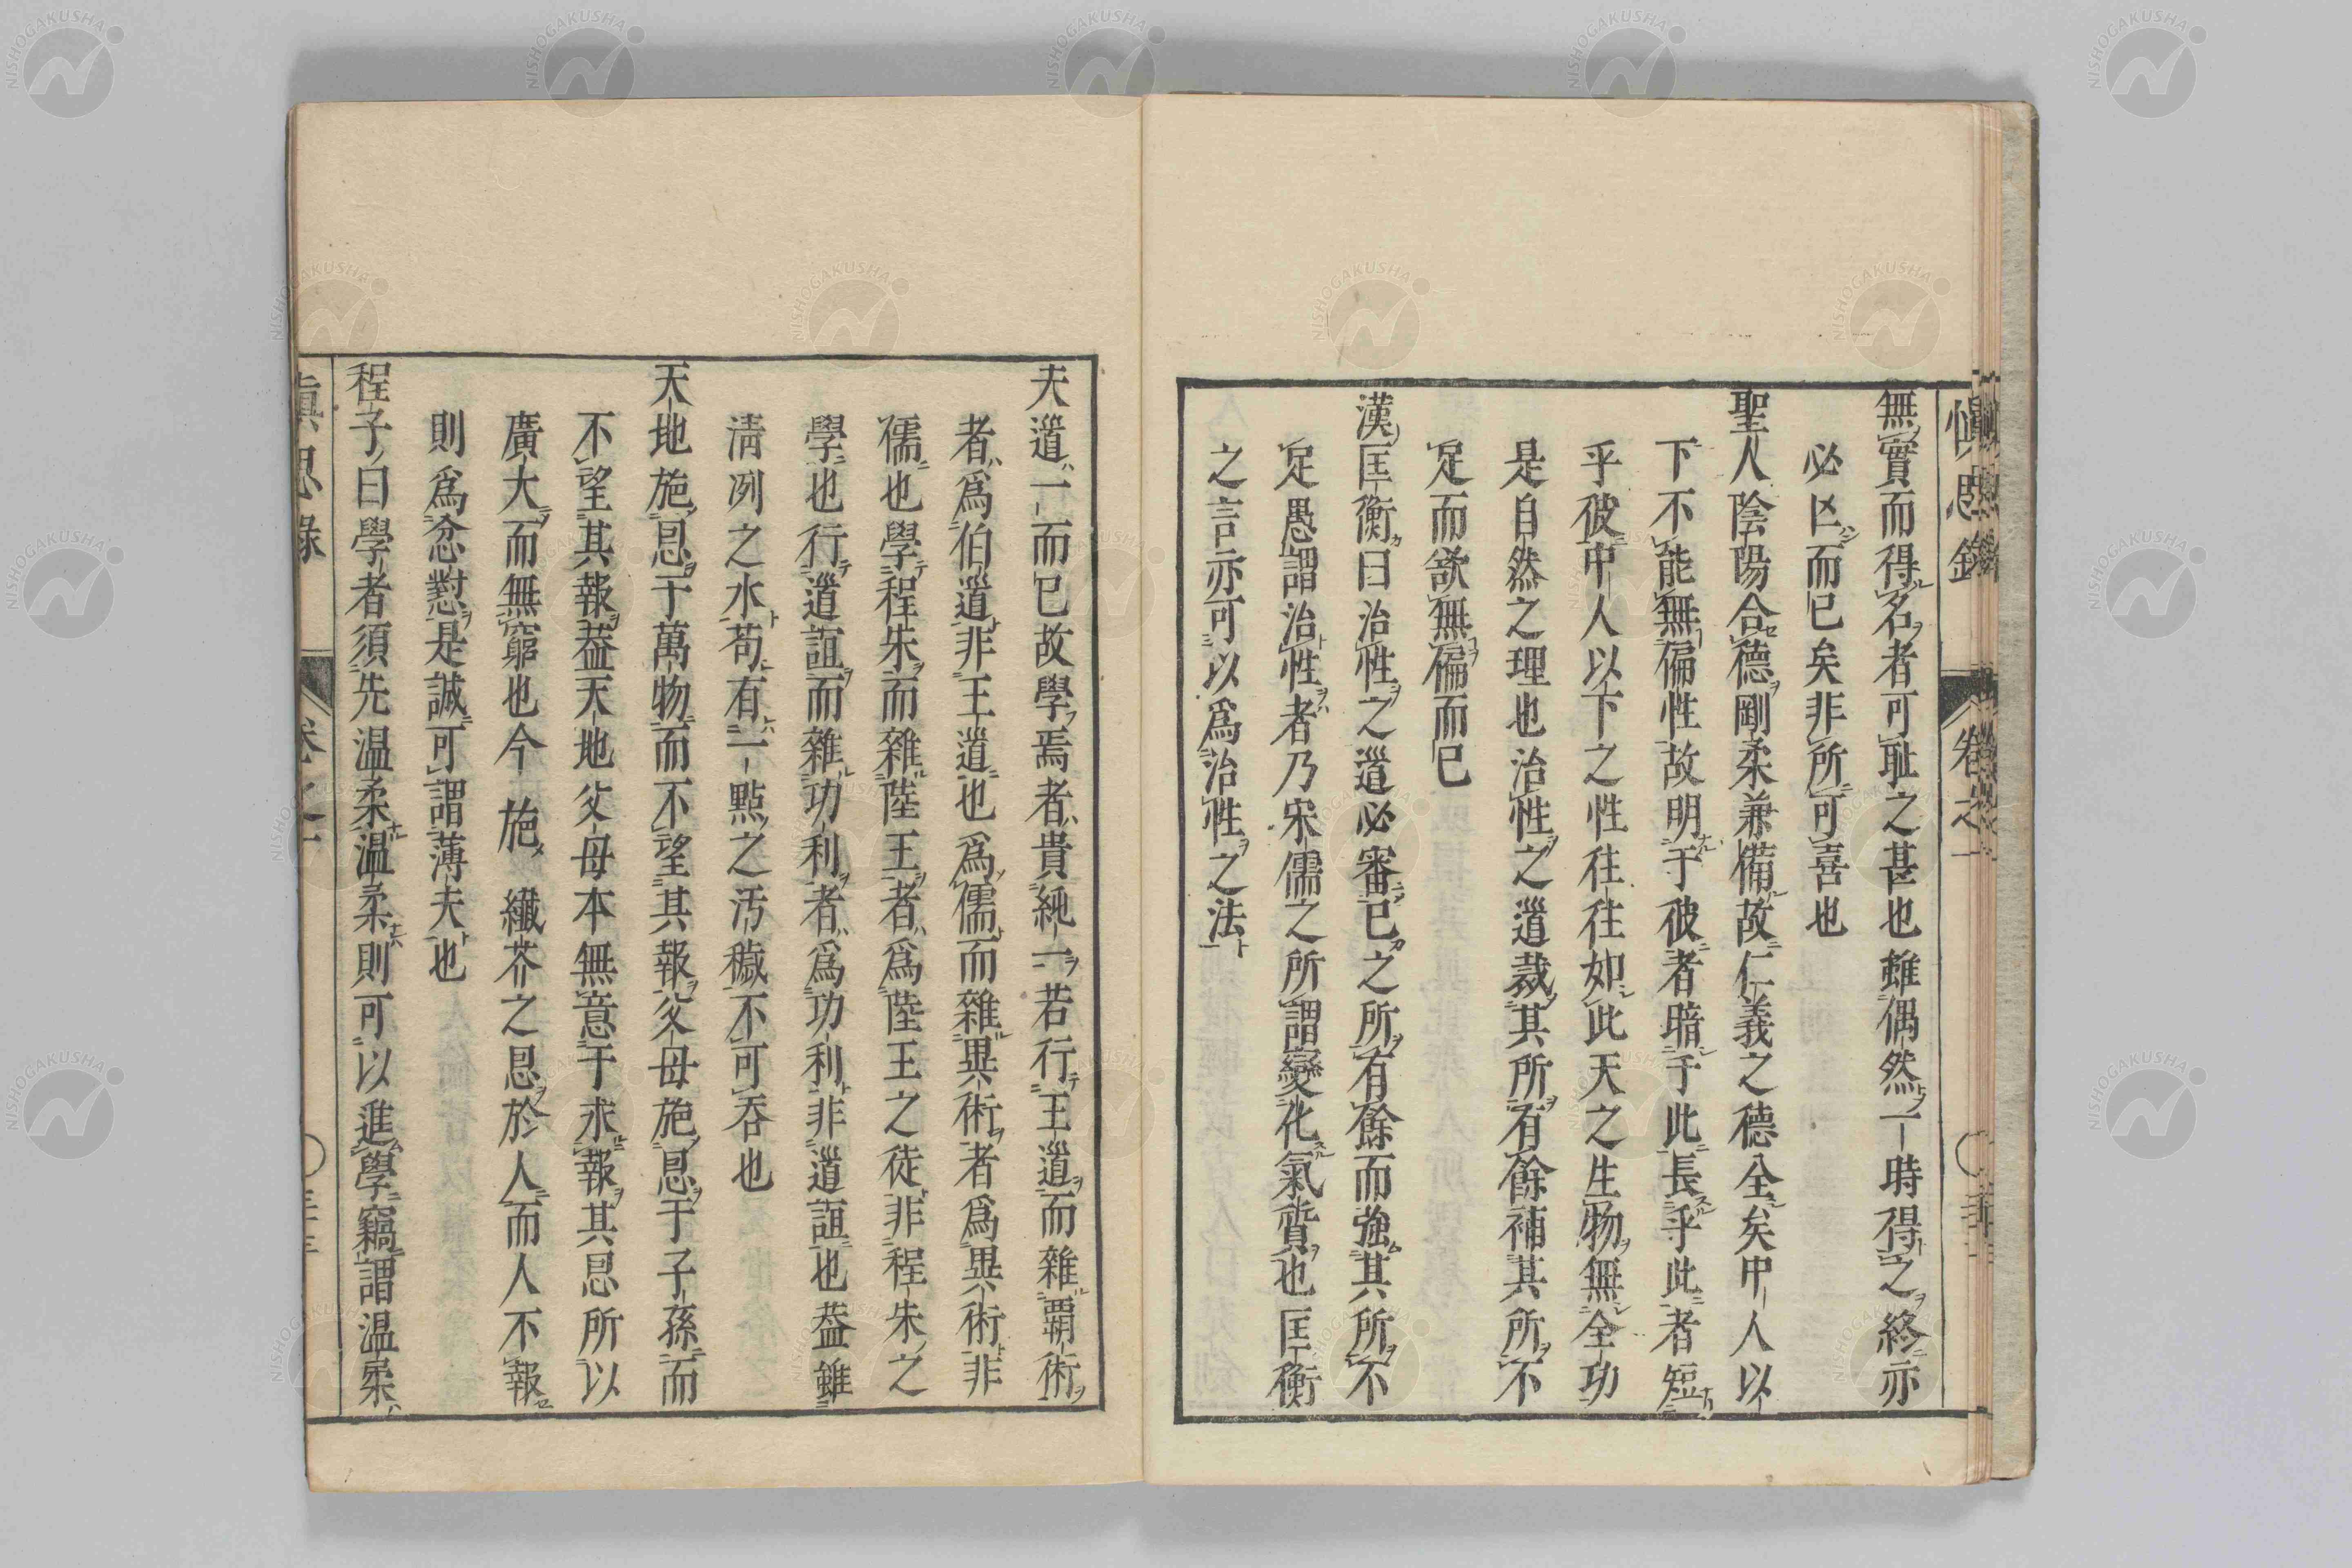 無實而得名者可耻之甚也雖偶然一時得之終亦
必亡而已矣非所可喜也
聖人陰陽合德剛柔兼備故仁義之德全矣中人以
下不能無偏性故明于彼者暗于此長乎此者短
乎彼中人以下之性往往如此天之生物無全功
是自然之理也治性之道裁其所有餘補其所不
足而欲無偏而已
漢匡衡曰治性之道必審己之所有餘而強其所不
足愚謂治性者乃宋儒之所謂變化氣質也匡衡
之言亦可以爲治性之法
夫道一而已故學焉者貴純一若行王道而雜霸術
者爲伯道非王道也爲儒而雜異術者爲異術非
儒也學程朱而雜陸王者爲陸王之徒非程朱之
學也行道誼而雜功利者爲功利非道誼也蓋雖
清冽之水苟有一點之汚穢不可吞也
天地施恩于萬物而不望其報父母施恩于子孫而
不望其報蓋天地父母本無意于求報其恩所以
廣大而無窮也今施纖芥之恩於人而人不報
則爲忿懟是誠可謂薄夫也
程子曰學者須先温柔温柔則可以進學竊謂温柔